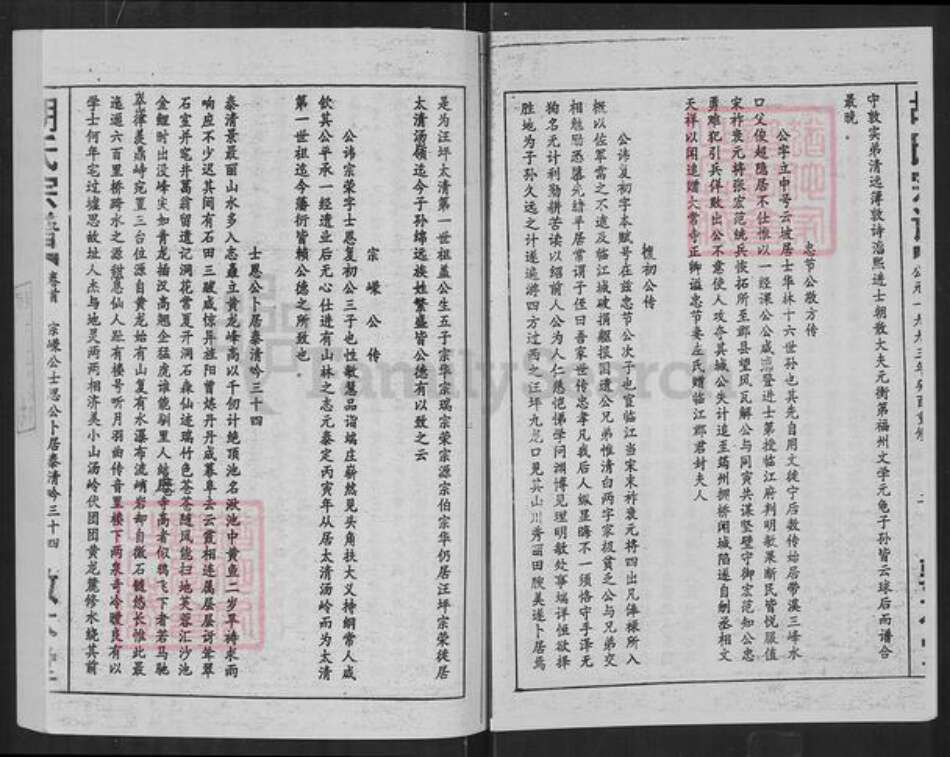 中敦实弟清远簿敦诗淄熙进士朝散大夫元衡第福州文学元龟子孙皆云球后而谱合
最晚。
忠节公敖方传
公字立中号云坡居士华林十六世孙也其先自用文徙宁后数传始居带溪三峰水
口父俊超隐居不仕惟以一经课公公咸登进士第授临江府判明敏果断民皆悦服值
宋祚衰元将张宏范统兵恢拓所至郡县望风瓦解公与同寅共谋坚壁守御宏范知公忠
勇难犯引兵佯败出公不意使人攻夺其城公失计追至筠州捆桥闻城陷遂自刎丞相文
天祥以闻追赠大常寺正卿谥忠节妻左氏赠临江郡君封夫人
复初公传
公讳复初字本赋号在兹忠节公次子也宦临江当宋末祚衰元将四出凡俸禄所入
概以佐军需之不逮及临江城破捐躯报国遗公兄弟惟清白两字家极贫乏公与兄弟交
相勉励恐堕先绪平居常谓子侄曰吾家世传忠孝凡我后人纵显晦不一须恪守手泽无
狥名无计利勤耕苦读以绍前人公为人仁慈恺悌学问渊博见理明敏处事端详恒欲择
胜地为子孙久远之计遂遍游四方过西之汪坪九龙口见其山川秀丽田腴美遂卜居焉
是为汪坪太清第一世祖盖公生五子宗华宗瑞宗荣宗源宗伯宗华仍居汪坪宗荣徙居
太清汤岭迄今子孙绵远族姓繁盛皆公德有以致之云
宗嵘公传
公讳宗荣字士恩复初公三子也性敏慧品诣端庄崭然见头角扶大义持纲常人咸
钦其公平承一经遗业后无心仕进有山林之志元泰定丙寅年从居太清汤岭而为太清
第一世祖迄今蕃衍皆赖公德之所致也
士恩公卜居泰清吟三十四
泰清景最丽山水多入志矗立黄龙峰高以千仞计绝顶池名湫池中黄鱼二岁旱祷水雨
响应不少迟其间有石田三跛咸惊异旌阳曾炼丹丹成幕阜去云霞相连属层层讶耸翠
石室并宅井葛翁留遗记洞花常夏开洞石森仙迹瑞竹色苍苍随风能扫地芙蓉汇沙池
金鲤时出没峰尖如青龙插汉高翘企猛虎谁能驯里人站寺高者似鸦飞下者若马驰
翠嵂差鼎峙宛置三台位源自黄龙始有山复有水瀑布流峭岩却自微石髓悠长惟此最
迤逦六百里桥跨水之源慈恩仙人趾有楼号听月羽曲传音里楼下两泉奇冷暖良有以
学士何年宅过墟思故址人杰与地灵两两相济美小山汤岭伏团团黄龙麓修水绕其前
宗嵘公士恩公卜居泰清吟三十四
卷首
公元一九九三年癸酉重修
FamilySearch